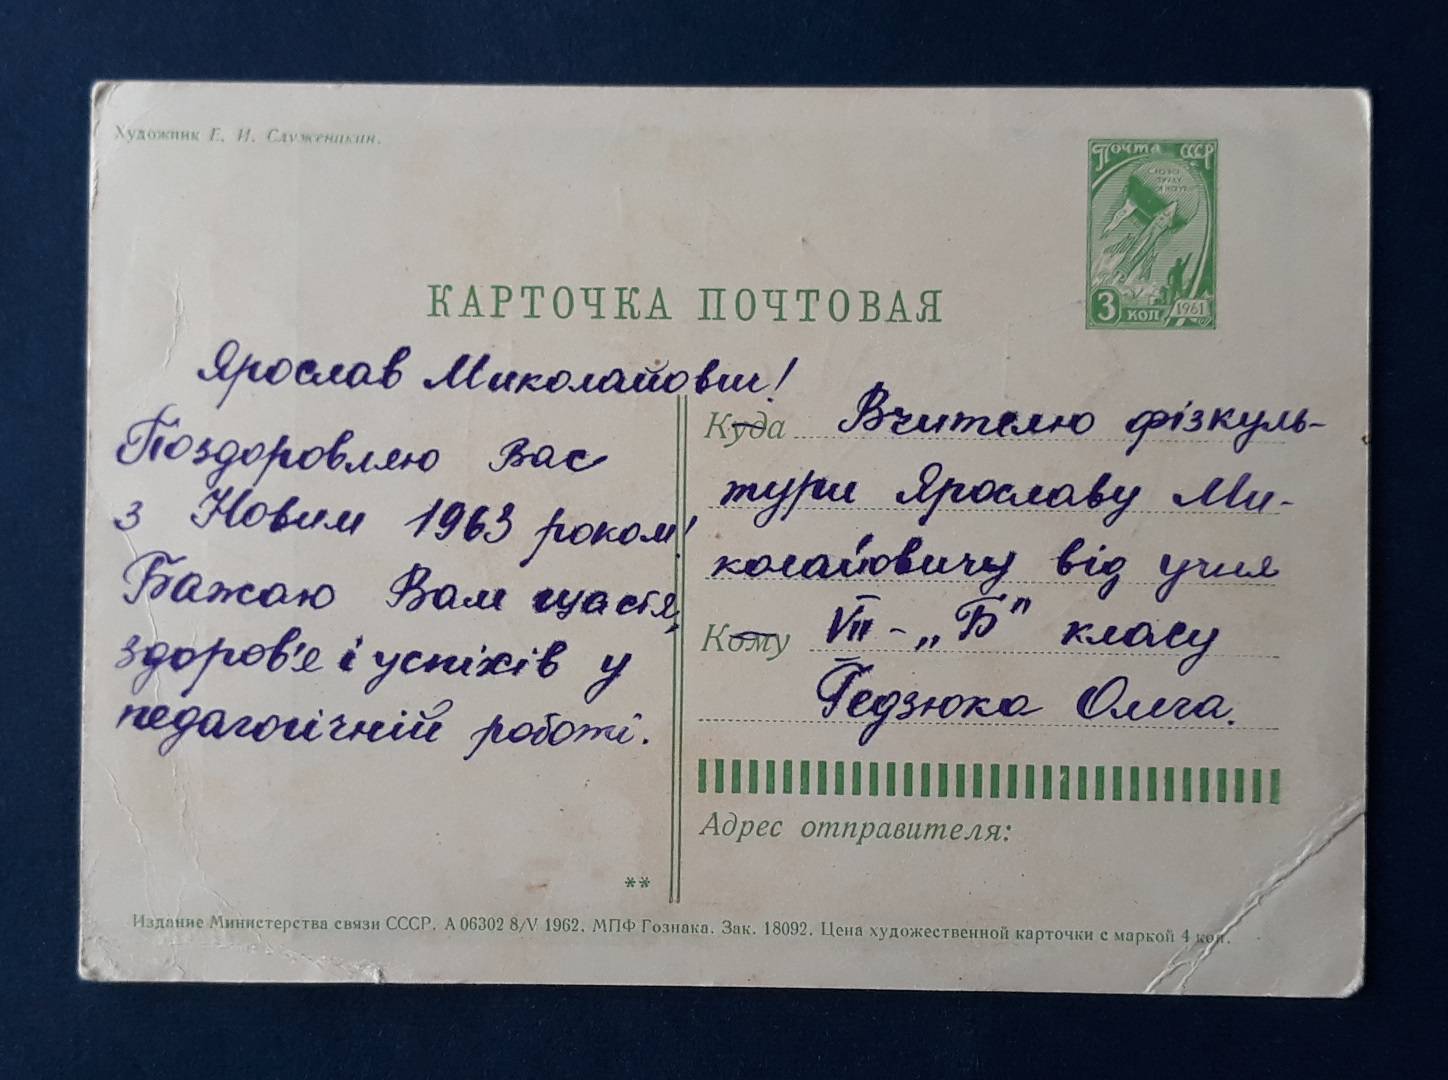 Художник Е. И. Служеникин.
Почта СССР
3 коп
1961
КАРТОЧКА ПОЧТОВАЯ
Ярослав Миколайович!
Поздоровляю Вас
з Новим 1963 роком!
Бажаю Вам щастя,
здоров'я і успіхів у
педагогічній роботі.
Куда Вчителю фізкуль-
тури Ярославу Ми-
колайовичу від учня
Кому VII-„Б" класу
Гедзюка Олега.
Адрес отправителя:
**
Издание Министерства связи СССР. А 06302 8/V 1962. МПФ Гознака. Зак. 18092. Цена художественной карточки с маркой 4 коп.